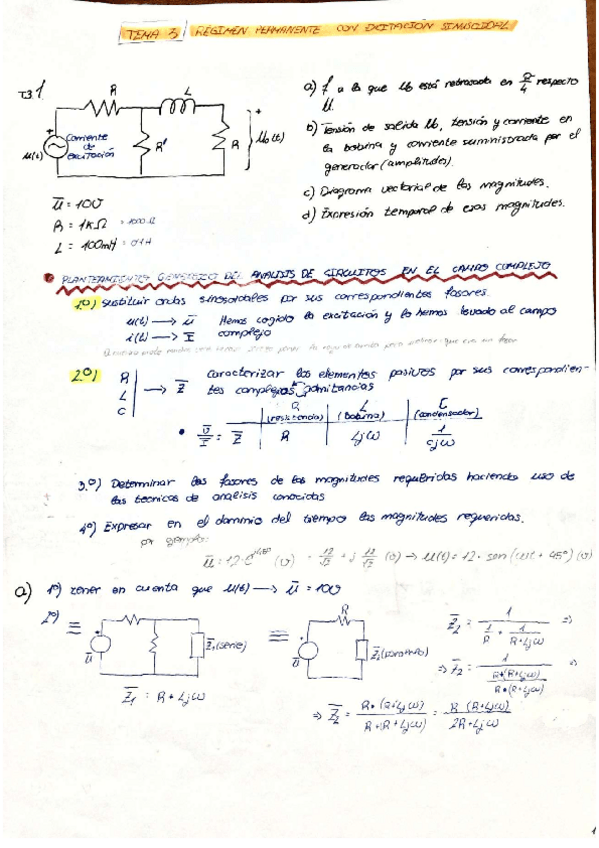 TEMA 3 RÉGIMEN PERMANENTE CON EXCITACIÓN SINUSOIDAL
T3.1.
R
L
+
u(t)
Corriente de excitación
R'
R
u₀(t)
a) f a la que u₀ está retrasada en π/4 respecto u.
b) Tensión de salida u₀, tensión y corriente en la bobina y corriente suministrada por el generador (amplitudes).
c) Diagrama vectorial de las magnitudes.
d) Expresión temporal de esas magnitudes.
u̅ = 10V
R = 1KΩ = 1000Ω
L = 100mH = 0'1H
PLANTEAMIENTO GENERICO DEL ANALISIS DE CIRCUITOS EN EL CAMPO COMPLEJO
1.º) Sustituir ondas sinosoidales por sus correspondientes fasores.
u(t) → u̅ Hemos cogido la excitación y lo hemos llevado al campo
i(t) → I̅ complejo
2.º) R L C → Z̅ caracterizar los elementos pasivos por sus correspondien-
tes complejos admitancias
R (resistencia) L (bobina) C (condensador)
• U̅/I̅ = Z̅ R Ljω 1/Cjω
3.º) Determinar los fasores de las magnitudes requeridas haciendo uso de
las tecnicas de analisis conocidas
4º) Expresar en el dominio del tiempo las magnitudes requeridas.
por ejemplo:
u̅ = 12·e^(j45º) (v) = 12/√2 + j 12/√2 (v) → u(t) = 12·sen(ωt + 45º) (v)
a) 1º) tener en cuenta que u(t) → u̅ = 10V
2º) ≡ u̅ Z̅₁(serie) ≡ u̅ R
Z̅₁ = R + Ljω
Z̅₂ = 1/(1/R + 1/(R+Ljω)) ⇒
⇒ Z̅₂ = 1/((R+(R+Ljω))/(R·(R+Ljω))) ⇒
⇒ Z̅₂ = R·(R+Ljω)/(R+(R+Ljω)) = R(R+Ljω)/(2R+Ljω)
1